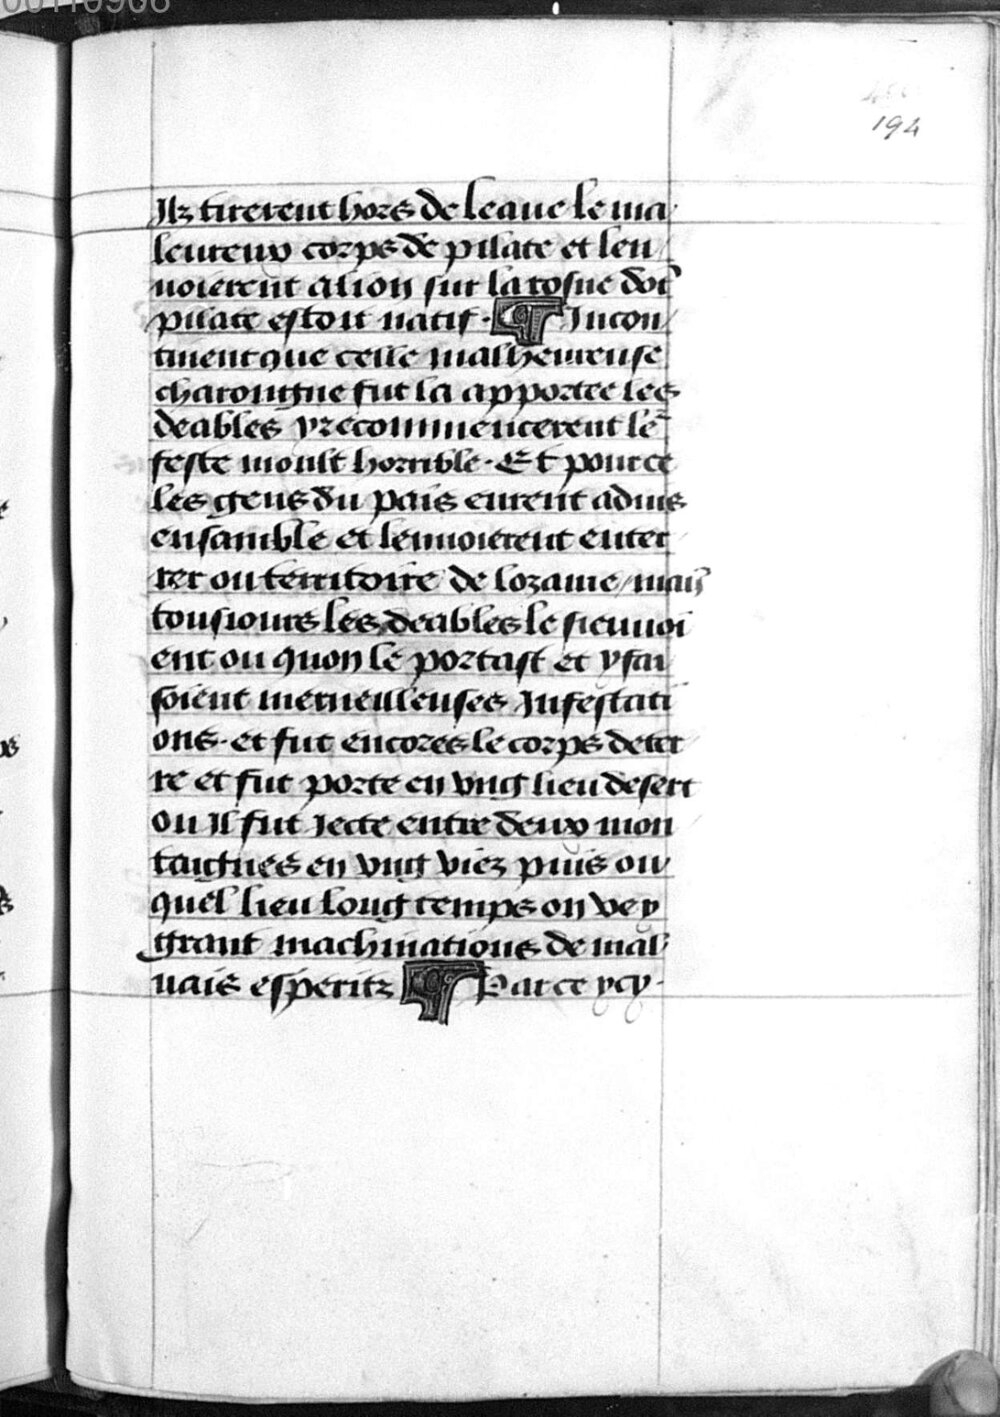 00110908
194
Ilz tirerent hors de leaue le ma
leureux corps de pilate et len
uoierent a lion sur la rosne dot
pilate estoit natif . ¶ Incon
tinent que celle malheureuse
charongne fut la apportee les
deables y recommencerent le
feste moult horrible . Et pour ce
les gens du pais eurent aduis
ensamble et lenuoierent enter
rer ou territoire de lozanne / mais
tousiours les deables le sieuuoi
ent ou quon le portast et y fai
soient merueilleuses Infestati
ons . et fut encores le corps deter
re et fut porte en vng lieu desert
ou Il fut Jecte entre deux mon
taignes en vng viez puis ou
quel lieu long temps on vey
grant machinations de mal
uais esperitz ¶ Par ce ycy .